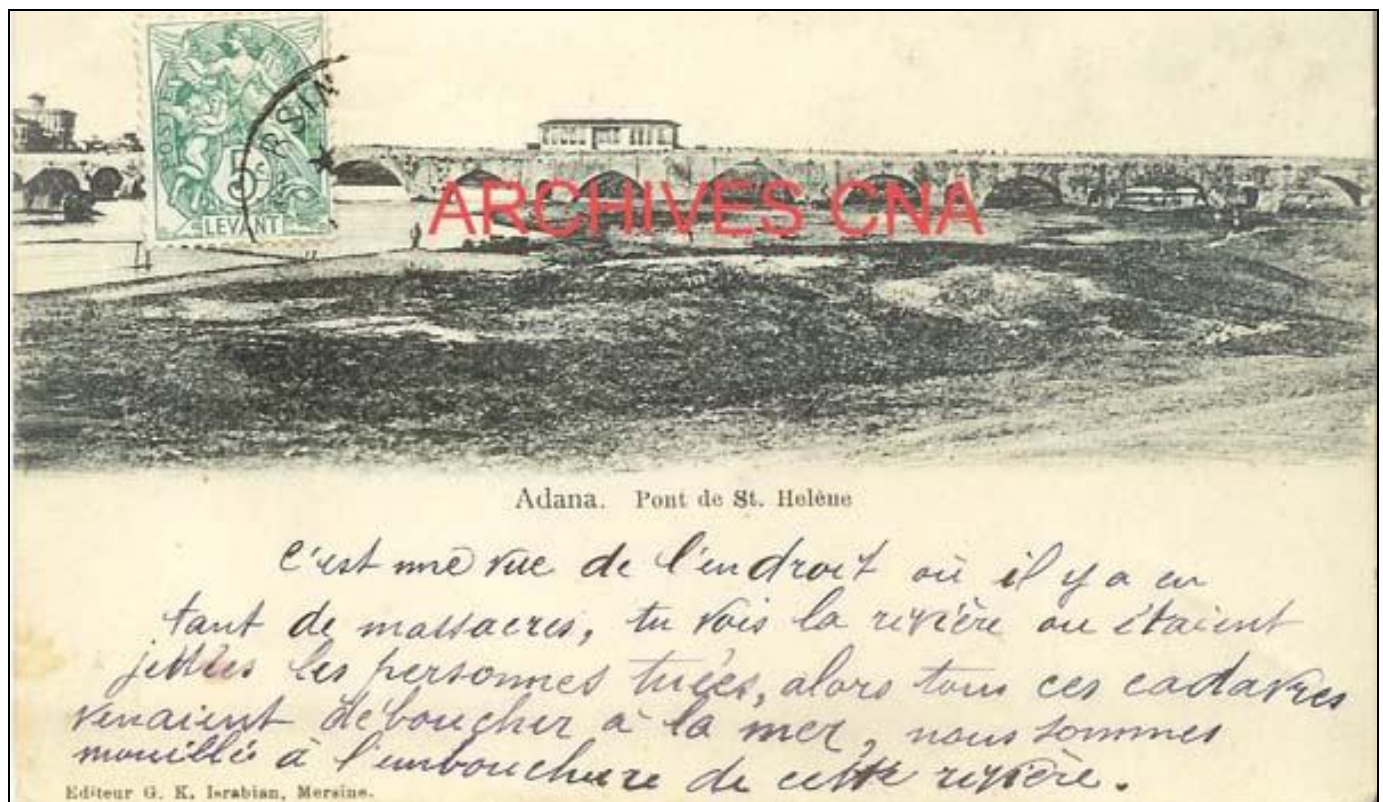 POSTES
5c
LEVANT
RSIN
ARCHIVES CNA
Adana. Pont de St. Helène
C'est une vue de l'endroit où il y a eu
tant de massacres, tu vois la rivière ou étaient
jettées les personnes tuées, alors tous ces cadavres
venaient déboucher à la mer, nous sommes
mouillés à l'embouchure de cette rivière.
Editeur G. K. Israbian, Mersine.